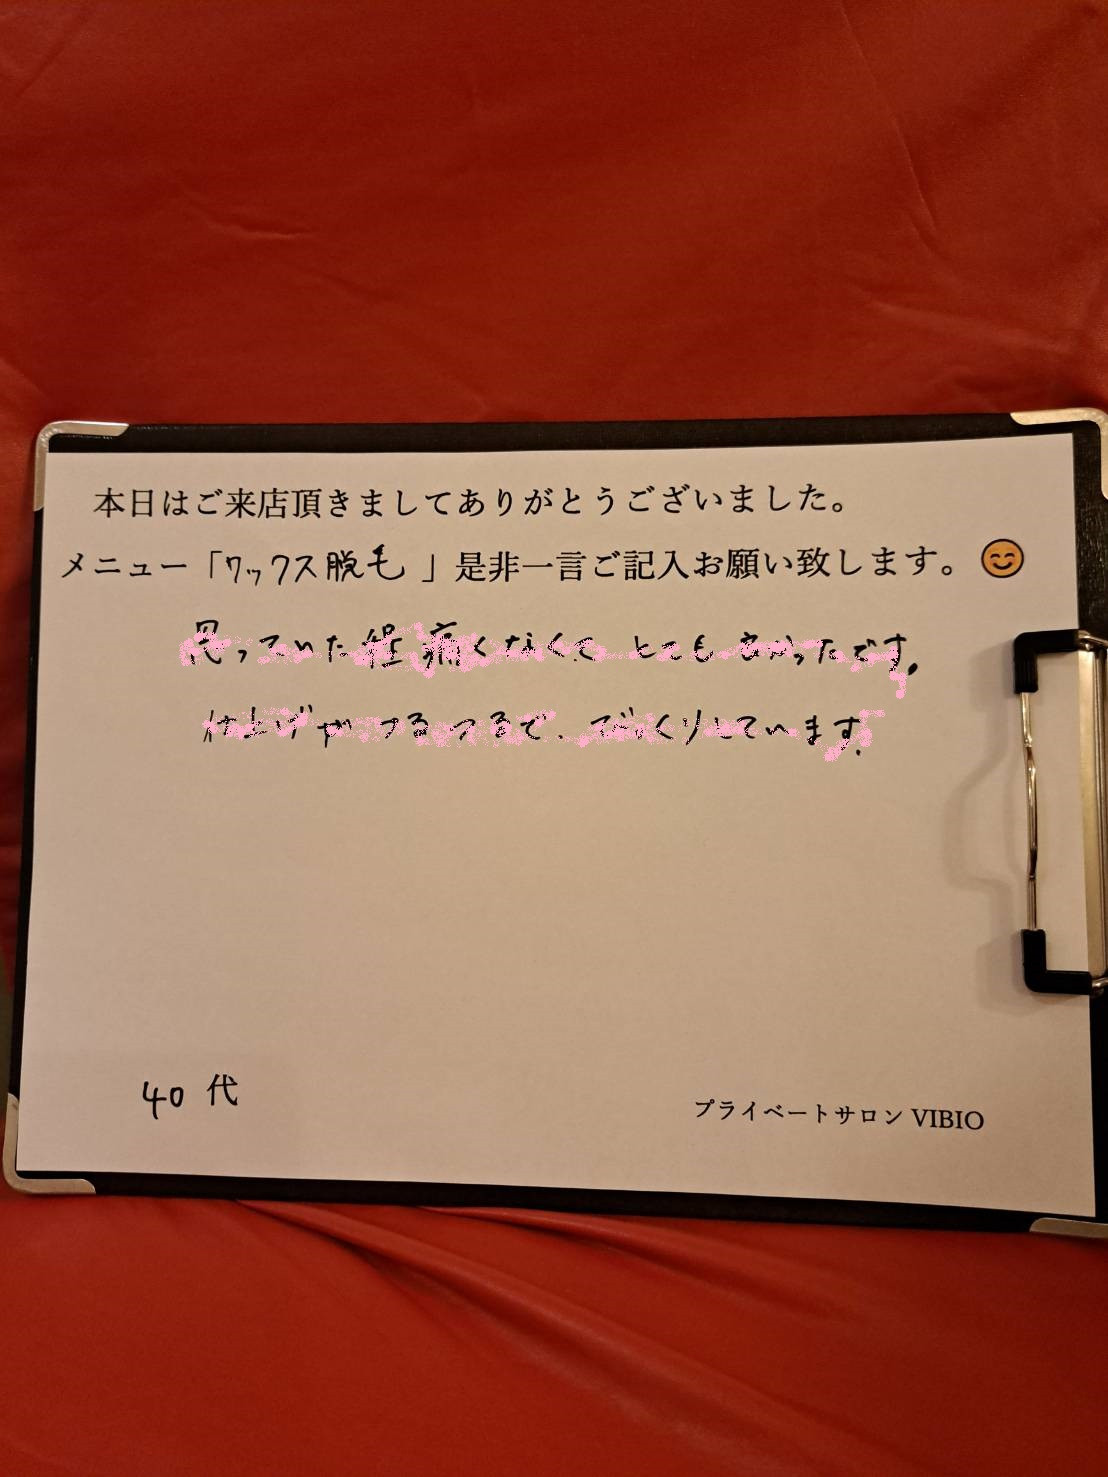 本日はご来店頂きましてありがとうございました。
メニュー「ワックス脱毛」是非一言ご記入お願い致します。😊
思っていた程痛くなくて とても良かったです。
仕上げやつるつるで、びっくりしています。
40 代
プライベートサロン VIBIO